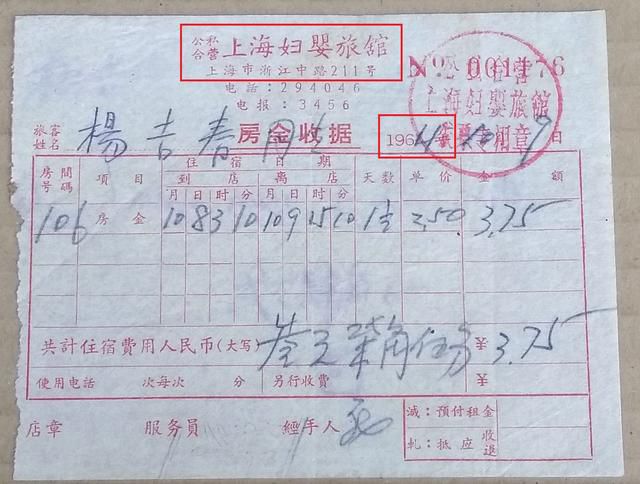 公私合营 上海妇嬰旅舘
上海市浙江中路211号
电话：294046
电报：3456
No 001176
公私合营
上海妇嬰旅館
專用章
旅客姓名 楊吉春 房金收据 1964年10月9日
房間号碼 項目 住宿日期 天数 单价 金額
到店 离店
月 日 时 分 月 日 时 分
106 房金 10 8 3 10 10 9 15 10 1½ 2.50 3.75
共計住宿費用人民币(大写) 叁元柒角伍分 3.75
使用电話 次每次 分 另行收費
店章 服务員 經手人
減：預付租金
軋：抵应收退